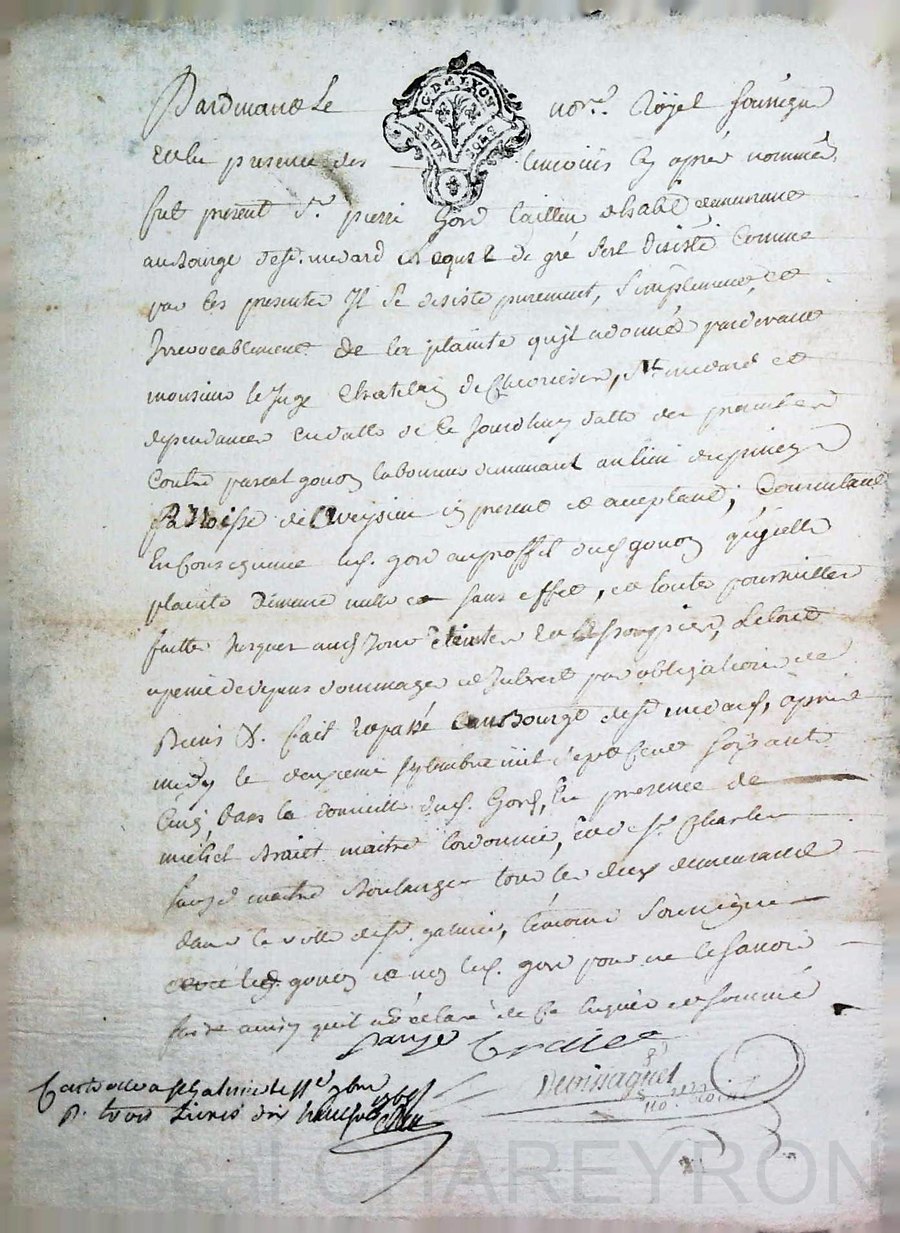 Pardevant Le nore. Royal soussigné
G. DE LYON
DEUX SOLS
en la presence des temoins cy aprés nommés
fut present sr. pierre Gord tailleur d'habit demeurant
au Bourg de st. medard lequel de gré s'est désisté comme
par les presentes Il se desiste purement, simplement et
Irrevocablement de la plainte qu'jl a donnée pardevant
monsieur le Juge Chatelain de Chevrieres, st. medard et
dependances en datte de ce Jourdhuy datte des presentes
Contre pascal gonon laboureur demeurant au lieu du piney
paroisse d'aveysieu cy present et acceptant; Consentant
En Consequence led. gord au proffit dud. gonon qu'jcelle
plainte Demeure nulle et sans effet, et toutes poursuittes
faittes Jusques aud. jour eteintes et assoupies, Le tout
a peine de tous depens dommages et Interest par obligation de
Biens &. fait et passé au Bourg de st. medard, aprés
midy le deuxieme septembre mil sept cent soixante
Cinq, dans le domicille dud. Gord, En presence de
michel Brait maitre Cordonnier, et de sr. Charles
sauze maitre Boulanger tous les deux demeurants
dans la ville de st. galmier, temoins soussignés
avec led. gonon et non led. gord pour ne le savoir
faire ainsy qu'il a déclaré de ce enquis et sommé
sauze Braite
nore. Roial
Controllé a st Galmier le 7bre 1765
R. trois Livres dix neuf sols
Pascal CHAREYRON